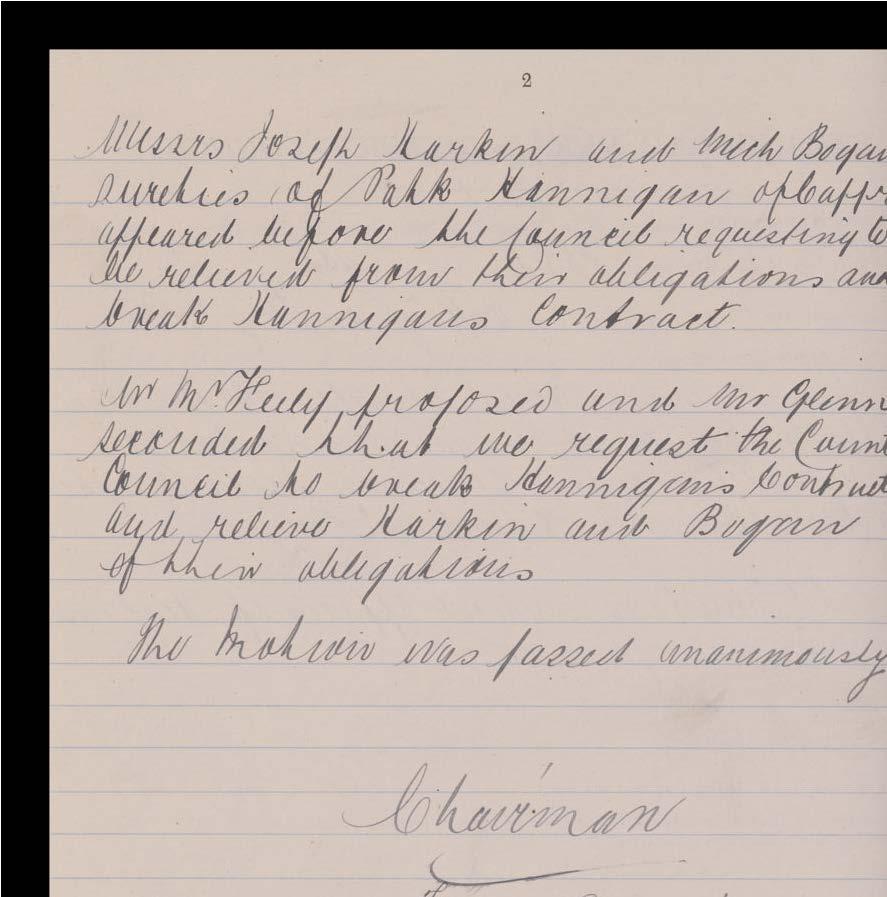 2
Messrs Joseph Harkin and Mich Bogan
sureties of Patk Hannigan of Cappr
appeared before the Council requesting to
be relieved from their obligations and
break Hannigans Contract.
Mr McFeely proposed and Mr Glenn
seconded that we request the Coun
Council to break Hannigans Contract
and relieve Harkin and Bogan
of their obligations
The Motion was passed unanimously
Chairman